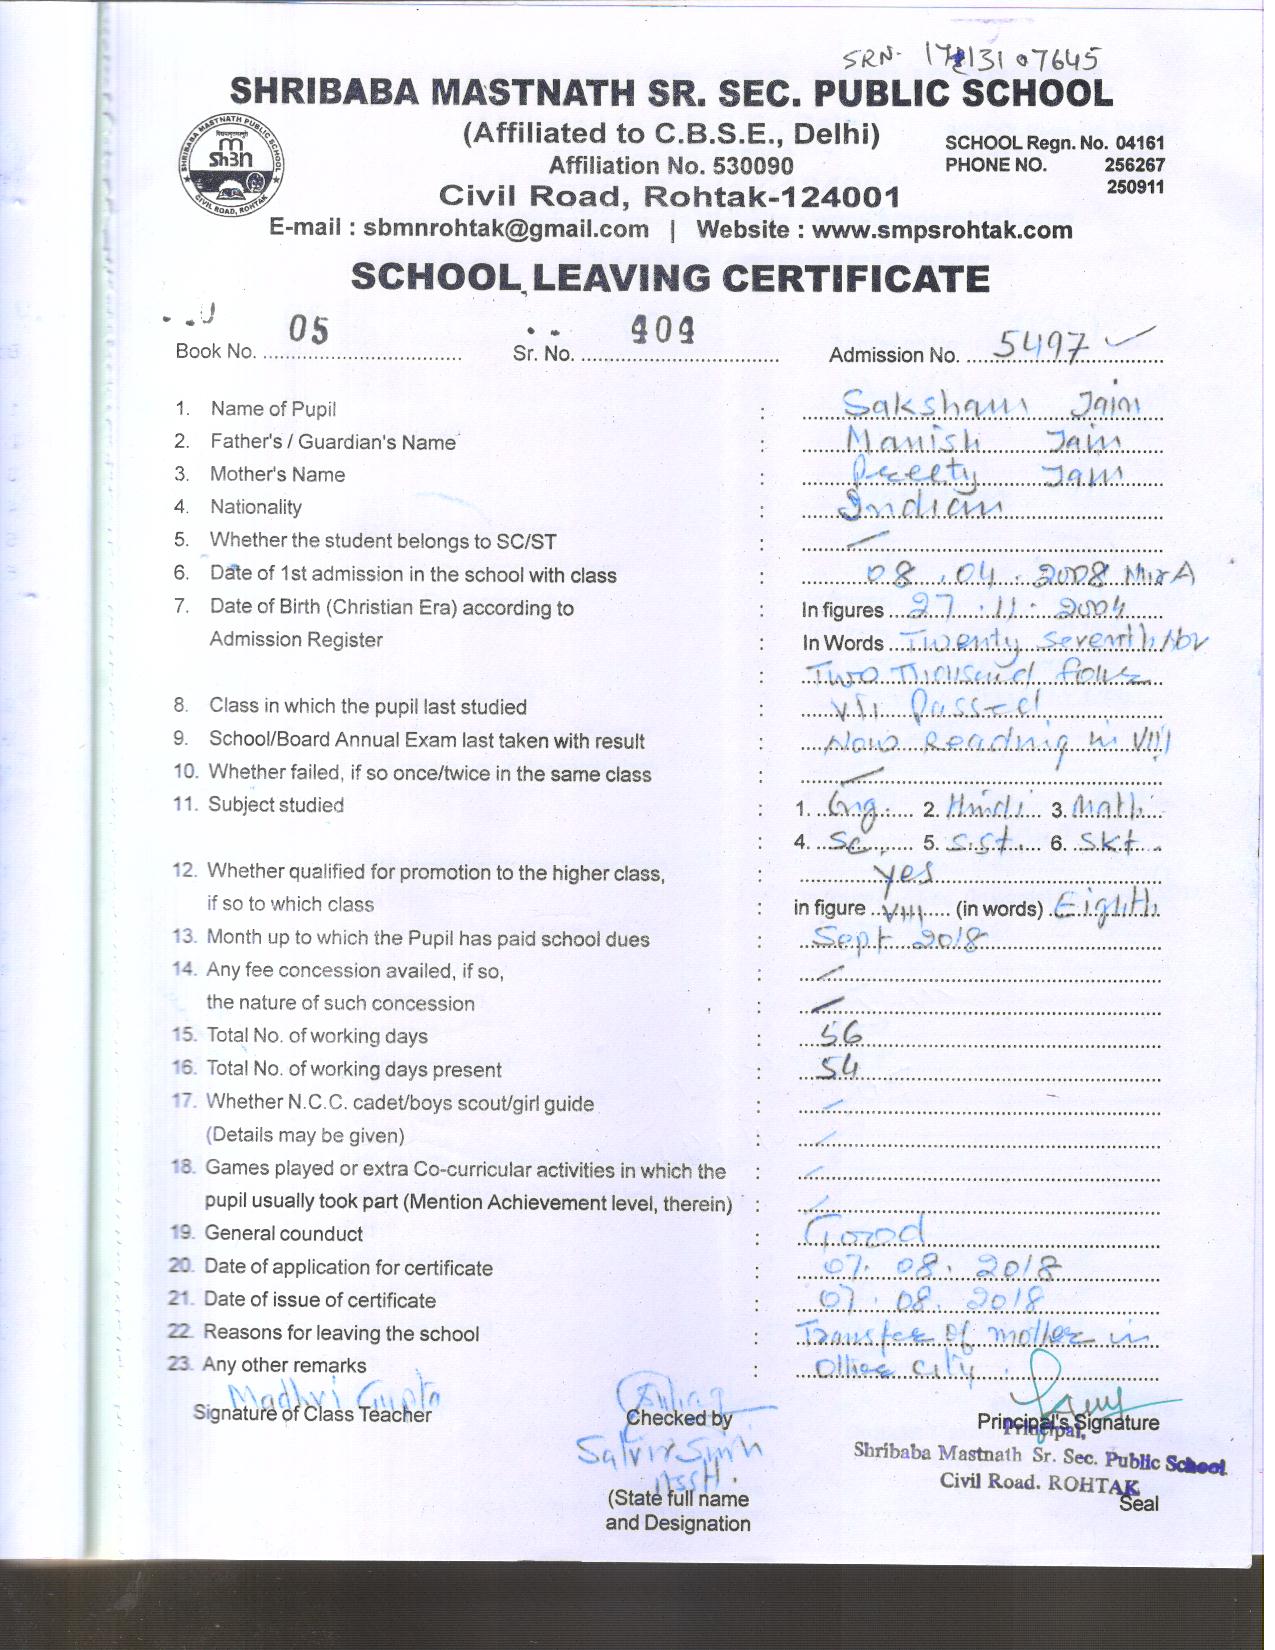 SRN- 1713107645
SHRIBABA MASTNATH SR. SEC. PUBLIC SCHOOL
(Affiliated to C.B.S.E., Delhi)
SCHOOL Regn. No. 04161
Affiliation No. 530090
PHONE NO. 256267
250911
Civil Road, Rohtak-124001
SHRIBABA MASTNATH PUBLIC SCHOOL
CIVIL ROAD, ROHTAK
E-mail : sbmnrohtak@gmail.com | Website : www.smpsrohtak.com
SCHOOL LEAVING CERTIFICATE
Book No. 05 Sr. No. 404 Admission No. 5497
1. Name of Pupil : Saksham Jain
2. Father's / Guardian's Name : Manish Jain
3. Mother's Name : Preety Jain
4. Nationality : Indian
5. Whether the student belongs to SC/ST :
6. Date of 1st admission in the school with class : 08.04.2008 Nur A
7. Date of Birth (Christian Era) according to : In figures 27.11.2004
Admission Register : In Words Twenty Seventh Nov
: Two Thousand four
8. Class in which the pupil last studied : VII Passed
9. School/Board Annual Exam last taken with result : Now Reading in VIII
10. Whether failed, if so once/twice in the same class :
11. Subject studied : 1. Eng. 2. Hindi 3. Math
: 4. Sc. 5. S.St. 6. Skt.
12. Whether qualified for promotion to the higher class, : yes
if so to which class : in figure VIII (in words) Eighth
13. Month up to which the Pupil has paid school dues : Sept 2018
14. Any fee concession availed, if so, :
the nature of such concession :
15. Total No. of working days : 56
16. Total No. of working days present : 54
17. Whether N.C.C. cadet/boys scout/girl guide :
(Details may be given) :
18. Games played or extra Co-curricular activities in which the :
pupil usually took part (Mention Achievement level, therein) :
19. General counduct : Good
20. Date of application for certificate : 07.08.2018
21. Date of issue of certificate : 07.08.2018
22. Reasons for leaving the school : Transfer of mother in
23. Any other remarks : other city.
Madhvi Gupta
Signature of Class Teacher Checked by Principal's Signature
Principal,
Shribaba Mastnath Sr. Sec. Public School
Civil Road. ROHTAK
Seal
(State full name
and Designation